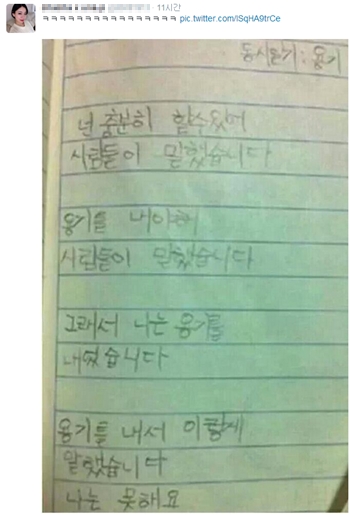 11시간
ㅋㅋㅋㅋㅋㅋㅋㅋㅋㅋㅋㅋㅋㅋㅋㅋ pic.twitter.com/lSqHA9trCe
동시쓰기 : 용기
넌 충분히 할수있어
사람들이 말했습니다
용기를 내야해
사람들이 말했습니다
그래서 나는 용기를
내었습니다
용기를 내서 이렇게
말했습니다
나는 못해요